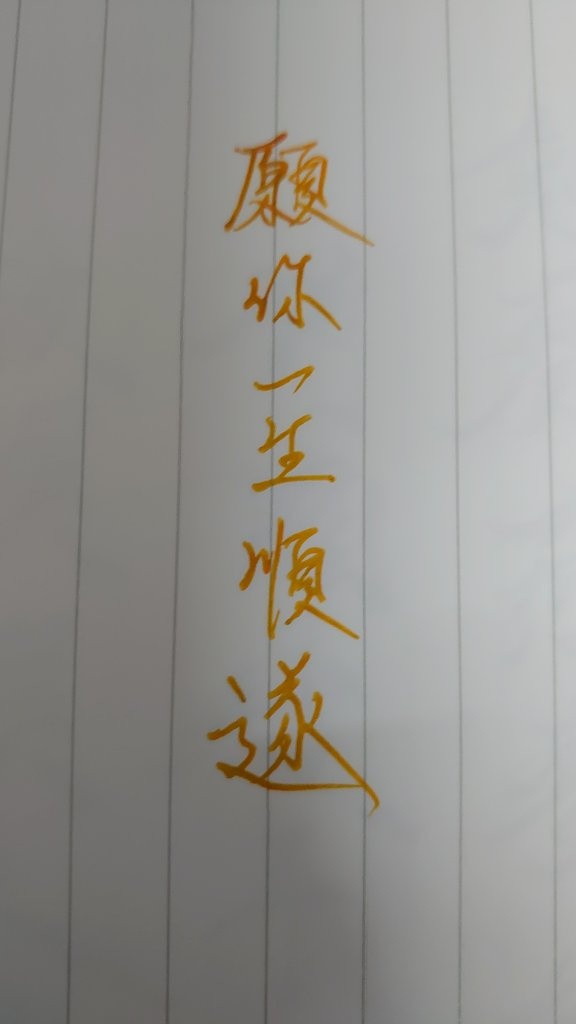 願你一生順遂